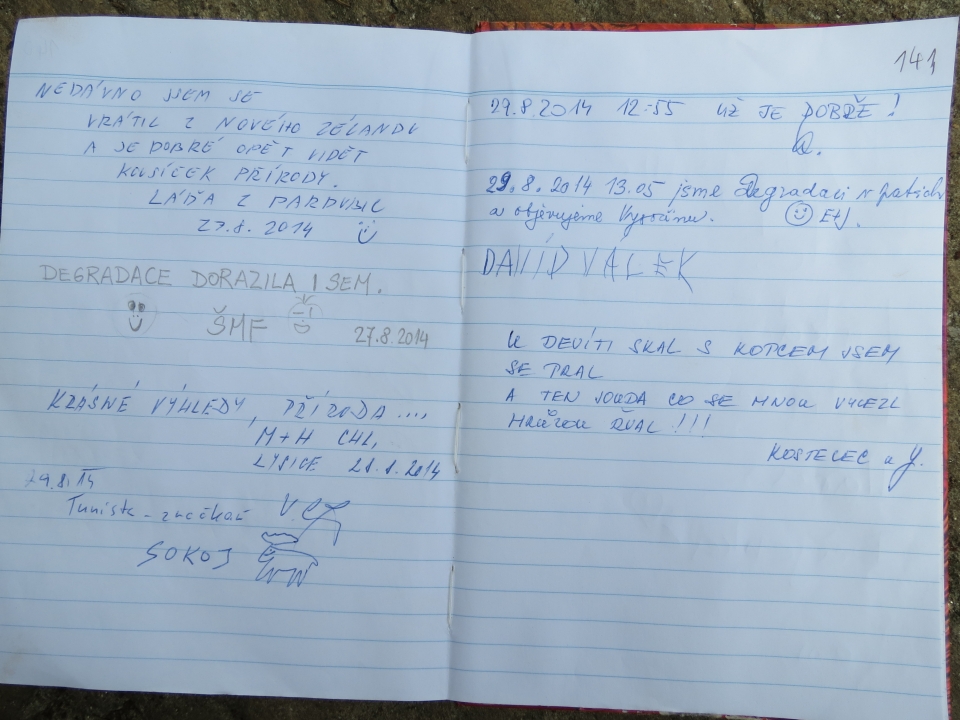 NEDÁVNO JSEM SE
VRÁTIL Z NOVÉHO ZÉLANDU
A JE DOBRÉ OPĚT VIDĚT
KOUSÍČEK PŘÍRODY.
LÁĎA Z PARDUBIC
27.8.2014
DEGRADACE DORAZILA I SEM.
ŠMF
27.8.2014
KRÁSNÉ VÝHLEDY, PŘÍRODA ....
M+H CHL,
LYSICE 28.8.2014
29.8.14
Turista - značkař
SOKOJ
141
29.8.2014 12:55 UŽ JE DOBŘE!
29.8.2014 13.05 jsme Degradaci v patách
a objevujeme Vysočinu. EtJ.
DAVID VÁLEK
K DEVÍTI SKAL S KOPCEM JSEM
SE PRAL
A TEN JOUDA CO SE MNOU VYLEZL
HRŮZOU ŘVAL !!!
KOSTELEC a J.